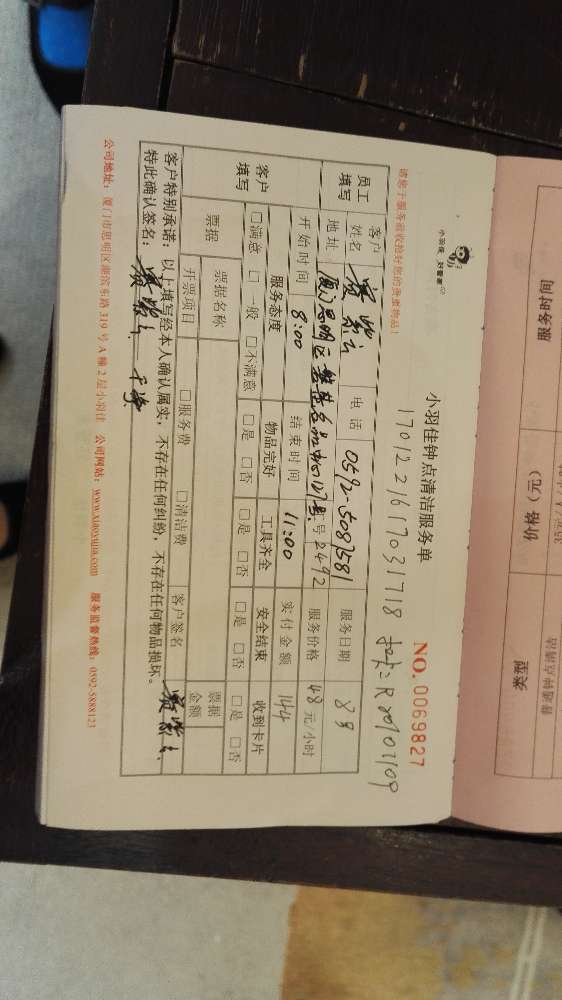 小羽佳 好管家
小羽佳钟点清洁服务单
NO. 0069827
请您于服务前收捡好您的贵重物品!
1701221617031718
员工填写
客户姓名
电话 0592-5087581
服务日期 8号
地址
号2492
服务价格 48 元/小时
开始时间 8:00
结束时间 11:00
实付金额 144
客户填写
服务态度 物品完好 工具齐全 安全结束 收到卡片
□满意 □一般 □不满意 □是 □否 □是 □否 □是 □否 □是 □否
票据
票据名称 客户签名 票据金额
开票项目 □服务费 □清洁费
客户特别承诺:以上填写经本人确认属实,不存在任何纠纷,不存在任何物品损坏。
特此确认签名:
公司地址:厦门市思明区湖滨东路319号A幢2层小羽佳 公司网站:www.xiaoyujia.com 服务监督热线:0592-5888123
服务时间
价格(元)
类型
普通钟点清洁